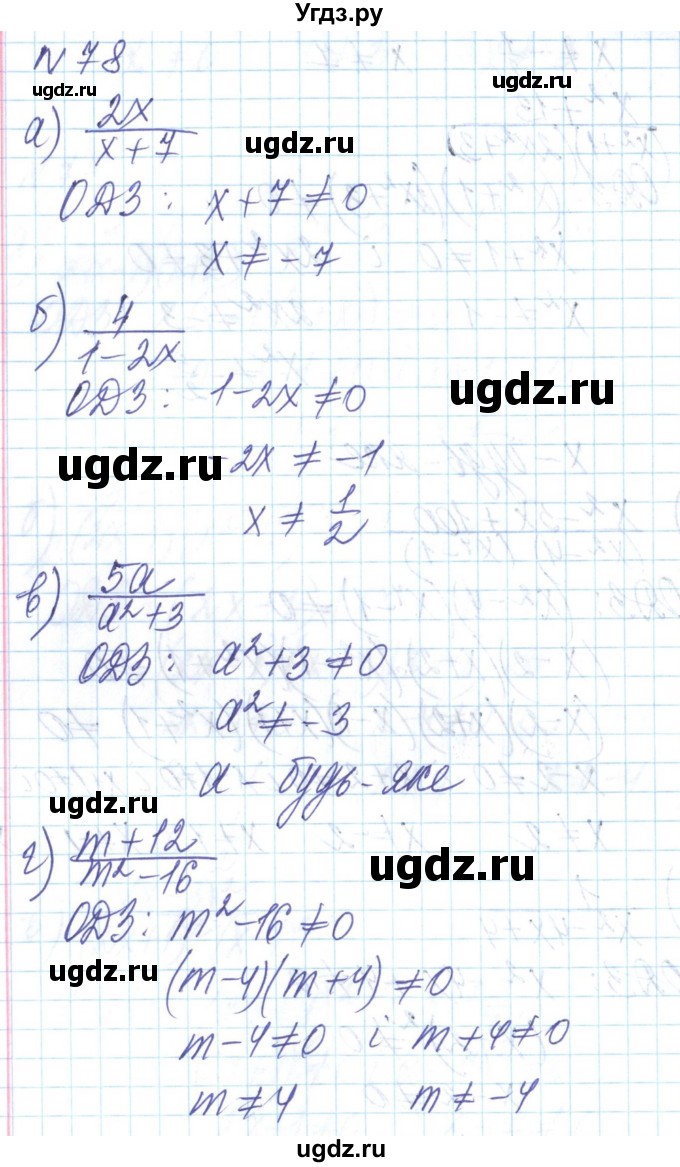 Угдз.ру
N 78
ugdz.ru
ugdz.ru
а) 2x / x+7
ugdz.ru
ОДЗ: x+7≠0
x≠-7
б) 4 / 1-2x
ОДЗ: 1-2x≠0
ugdz.ru
ugdz.ru
-2x≠-1
x≠ 1/2
в) 5a / a²+3
ОДЗ: a²+3≠0
a²≠-3
a - будь-яке
ugdz.ru
г) m+12 / m²-16
ugdz.ru
ОДЗ: m²-16≠0
ugdz.ru
(m-4)(m+4)≠0
m-4≠0 і m+4≠0
m≠4 m≠-4
ugdz.ru